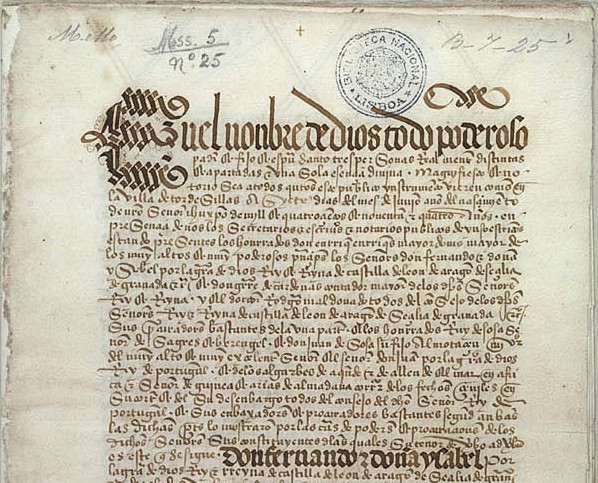 Mello
Mss. 5
Nº 25
B-7-25
BIBLIOTECA NACIONAL
LISBOA
En el nonbre de dios todo poderoso
padre & fijo & espu santo tres personas Realmente distintas
& apartadas & una sola esencia divina. Magnifiesto & no
torio sea a todos quantos este publico ynstrumento vieren como en
la villa de tordesillas A Syete dias del mes de junio año del nasçimjento
de nro señor ihu xpo de mill & quatroçientos & noventa & quatro años. en
presençia de nos los Secretarios & escrivanos & notarios publicos de yuso escritos
estando presentes los honrrados don enrrique enrriques mayordomo mayor de
los muy altos & muy poderosos prinçipes los Señores don fernando & doña
ysabel por la gra de dios Rey & Reyna de castilla de leon de aragon de seçilia
de granada &c. & don guterre de cardenas contador mayor de los dhos Señores
Rey & Reyna. y el dotor Rodrigo maldonado todos del consejo de los dhos
Señores Rey & Reyna de castilla de leon de aragon de Seçilia de granada &c.
Sus procuradores bastantes de la una parte. & los honrrados Ruy de sosa Señor
de Sagres & berenguel. & don juan de Sosa su fijo Almotaçen mayor
del muy alto & muy exçelente Señor el señor don juan por la gra de dios
Rey de portugal. & de los algarbes de aquende & de allende el mar en africa
& Señor de guinea & arias de almadana corregidor de los fechos çeviles en
Su corte & del Su desenbargo todos del consejo del dho Señor Rey de
portugal. & Sus enbaxadores & procuradores bastantes segund anbas
las dichas partes lo mostraron por las cartas de poderes & procuraçiones de los
dichos Señores Sus constituyentes de las quales Su tenor de verbo ad verbum
es este que se sigue. Don fernando & doña ysabel por
la gra de dios Rey & Reyna de castilla de leon de aragon de Seçilia de granada